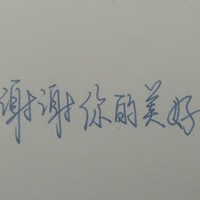 谢谢你的美好